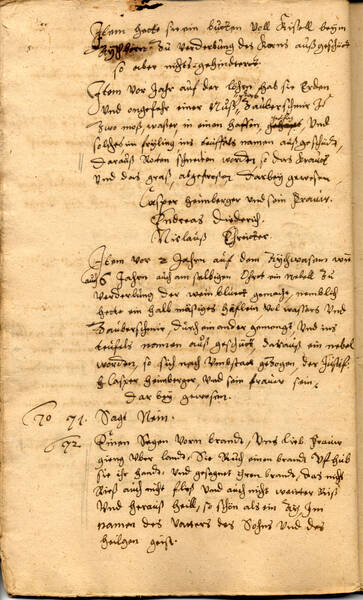 Item hette sie ein bücken voll Kißell beym
Zu verderbung des Korns außgeschüt
so aber nichts gehindert
Item vor Jahr auf der lohen, hab sie Erden
Und ongefahr einer Nuß, Zauberschmir J
zwo moß wasser in einen haffen, Und
solches im frieling ins teuffels namen außgeschüt,
darauß Roten worden so das Krautt
und das graß, abgefresen darbey gewesen
Casper heimberger und sein frauw.
Endreas Diederich.
Niclauß
Item vor 2 Jahren auf dem
auch 6 Jahren auch am selbigen Ohrt ein nebell zu
verderbung der wein blüett gemacht, nemblich
hette ein halb mäßiges häflein vol wassers Und
Zauberschmir durch einander gemengt Und ins
teufels namen auß geschüt, darauß ein nebel
worden, so sich nach gezogen der
Casper heimberger, Und sein frauw sein,
darbey gewesen.
Zo 71. Sagt Nein.
72. Einen Segen Vorm brandt, Uns lieb frauw
gieng Uber landt, Sie einen brandt Uf hub
sie ihr handt, Und gesegnet ihren brandt, das nicht
Rieß auch nicht fleß Und auch nicht weitter Riß
Und herauß heill, so schön als ein Ay, Im
namen des Vatters des Sohns Und des
heilgen geist.